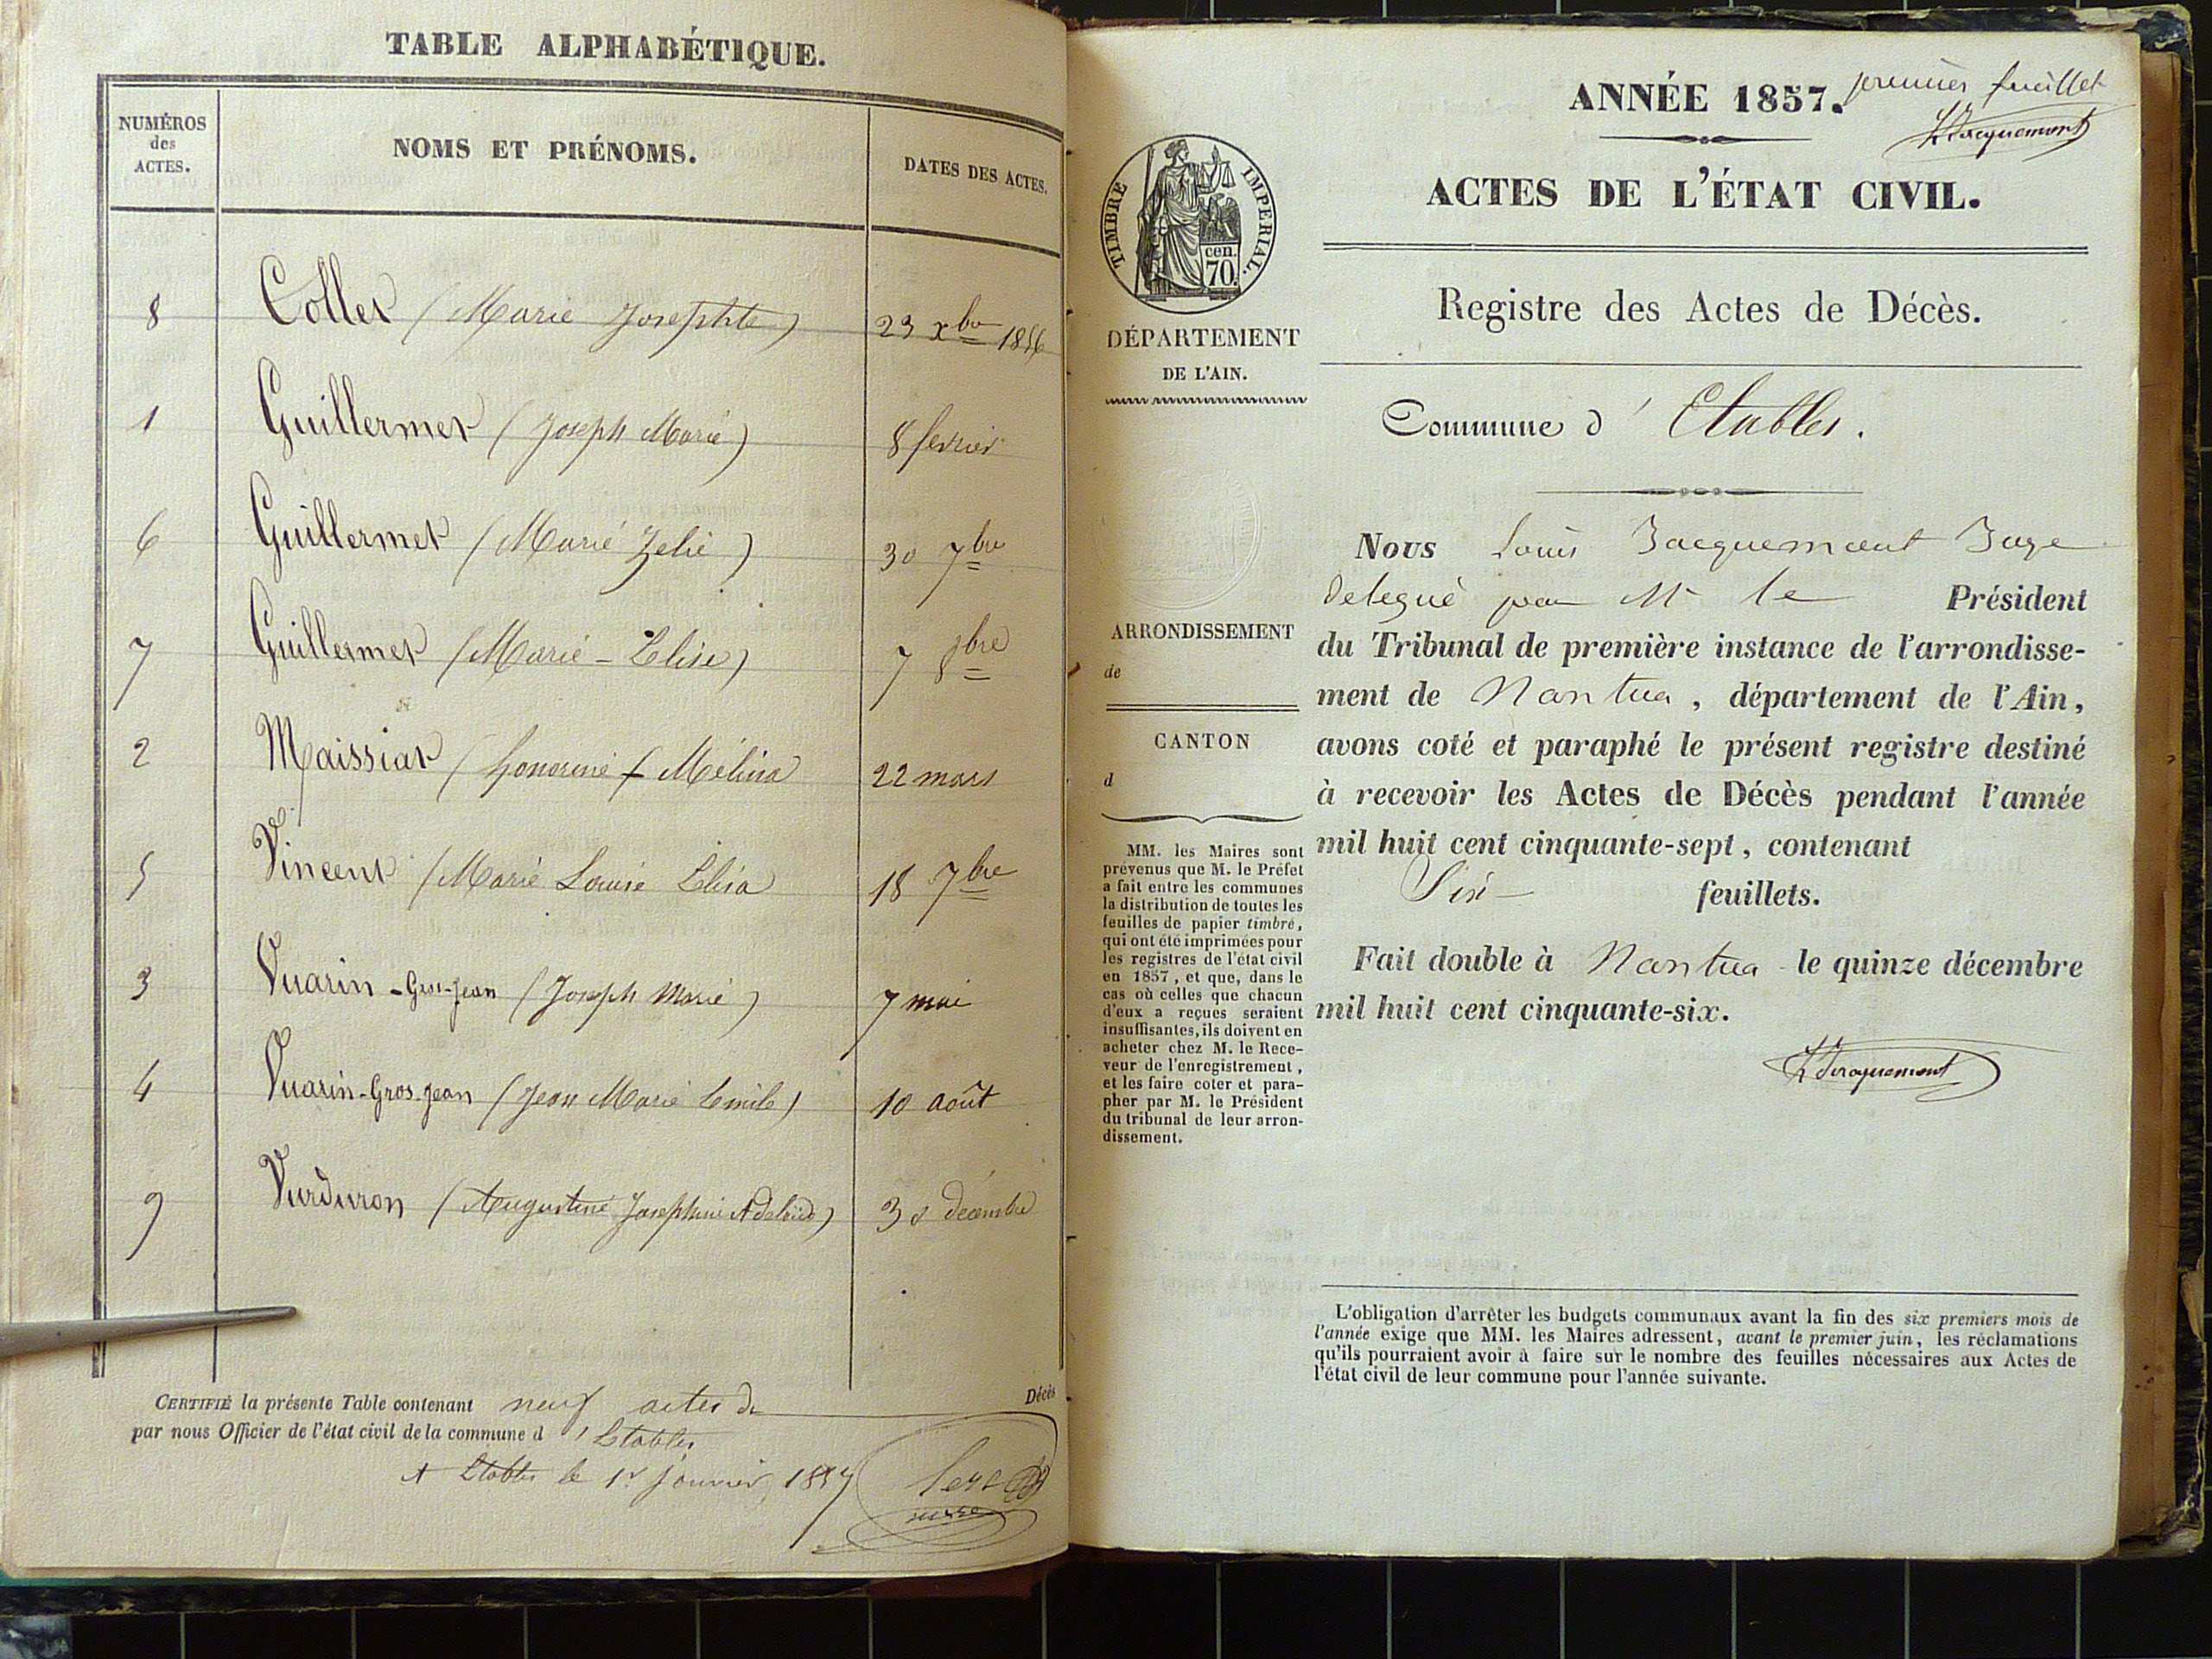 TABLE ALPHABÉTIQUE.
NUMÉROS
des
ACTES.
NOMS ET PRÉNOMS.
DATES DES ACTES.
8 Collet (Marie Josephte) 23 xbre 1856
1 Guillermet (Joseph Marie) 8 fevrier
6 Guillermet (Marie Zelie) 30 7bre
7 Guillermet (Marie-Elise) 7 8bre
2 Maissiat (honorine + Mélina 22 mars
5 Vincent (Marie Louise Elisa 18 7bre
3 Vuarin-Gros-Jean (Joseph Marie) 7 mai
4 Vuarin-Gros-Jean (Jean Marie Emile) 10 août
9 Vurduron (Augustine Josephine Adelaïde) 30 décembre
CERTIFIÉ la présente Table contenant neuf actes de Décès
par nous Officier de l'état civil de la commune d'Etables
A Etables le 1r janvier 1857
ANNÉE 1857.
premier feuillet
LJacquemont
ACTES DE L'ÉTAT CIVIL.
TIMBRE IMPERIAL.
cen.
70.
DÉPARTEMENT
DE L'AIN.
Registre des Actes de Décès.
Commune d'Etables.
ARRONDISSEMENT
de
CANTON
d
MM. les Maires sont
prévenus que M. le Préfet
a fait entre les communes
la distribution de toutes les
feuilles de papier timbré,
qui ont été imprimées pour
les registres de l'état civil
en 1857, et que, dans le
cas où celles que chacun
d'eux a reçues seraient
insuffisantes, ils doivent en
acheter chez M. le Rece-
veur de l'enregistrement,
et les faire coter et para-
pher par M. le Président
du tribunal de leur arron-
dissement.
Nous Louis Jacquemont Juge
délégué par Mr le Président
du Tribunal de première instance de l'arrondisse-
ment de Nantua, département de l'Ain,
avons coté et paraphé le présent registre destiné
à recevoir les Actes de Décès pendant l'année
mil huit cent cinquante-sept, contenant
Six feuillets.
Fait double à Nantua le quinze décembre
mil huit cent cinquante-six.
LJacquemont
L'obligation d'arrêter les budgets communaux avant la fin des six premiers mois de
l'année exige que MM. les Maires adressent, avant le premier juin, les réclamations
qu'ils pourraient avoir à faire sur le nombre des feuilles nécessaires aux Actes de
l'état civil de leur commune pour l'année suivante.